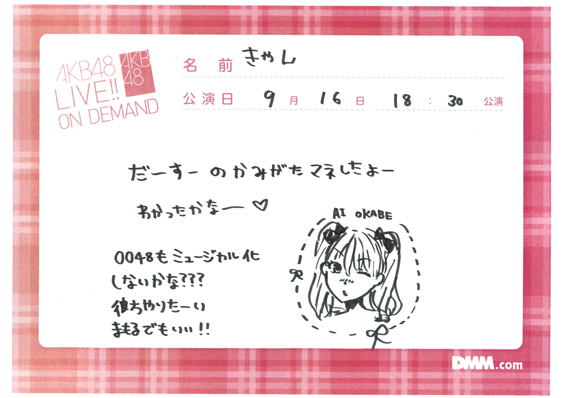 AKB48
LIVE!!
ON DEMAND
AKB
48
名前 きゃん
公演日 9月16日 18:30公演
だーすーのかみがたマネしたよー
わかったかなー♡
AI OKABE
0048もミュージカル化
しないかな???
彼ちやりたーい
まもるでもいい!!
DMM.com